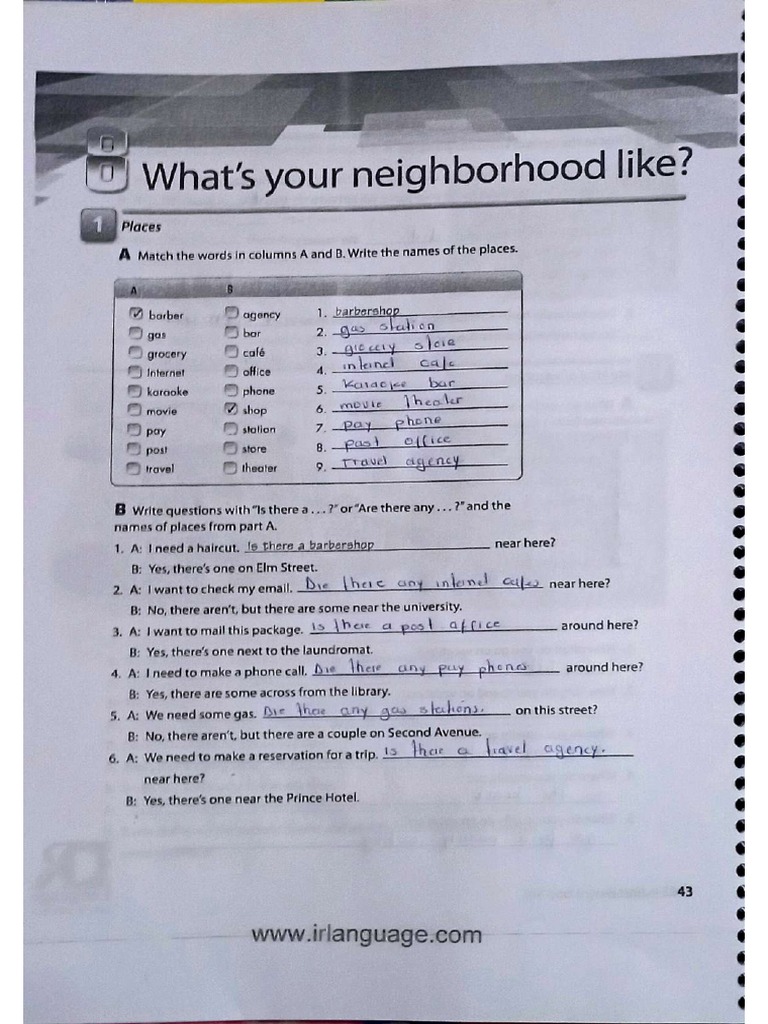 What's your neighborhood like?
1 Places
A Match the words in columns A and B. Write the names of the places.
A B
barber agency 1. barbershop
gas bar 2. gas station
grocery café 3. grocery store
Internet office 4. internet cafe
karaoke phone 5. Karaoke bar
movie shop 6. movie theater
pay station 7. pay phone
post store 8. post office
travel theater 9. Travel agency
B Write questions with "Is there a . . . ?" or "Are there any . . . ?" and the
names of places from part A.
1. A: I need a haircut. Is there a barbershop near here?
B: Yes, there's one on Elm Street.
2. A: I want to check my email. Are there any internet cafes near here?
B: No, there aren't, but there are some near the university.
3. A: I want to mail this package. Is there a post office around here?
B: Yes, there's one next to the laundromat.
4. A: I need to make a phone call. Are there any pay phones around here?
B: Yes, there are some across from the library.
5. A: We need some gas. Are there any gas stations. on this street?
B: No, there aren't, but there are a couple on Second Avenue.
6. A: We need to make a reservation for a trip. Is there a travel agency.
near here?
B: Yes, there's one near the Prince Hotel.
43
www.irlanguage.com